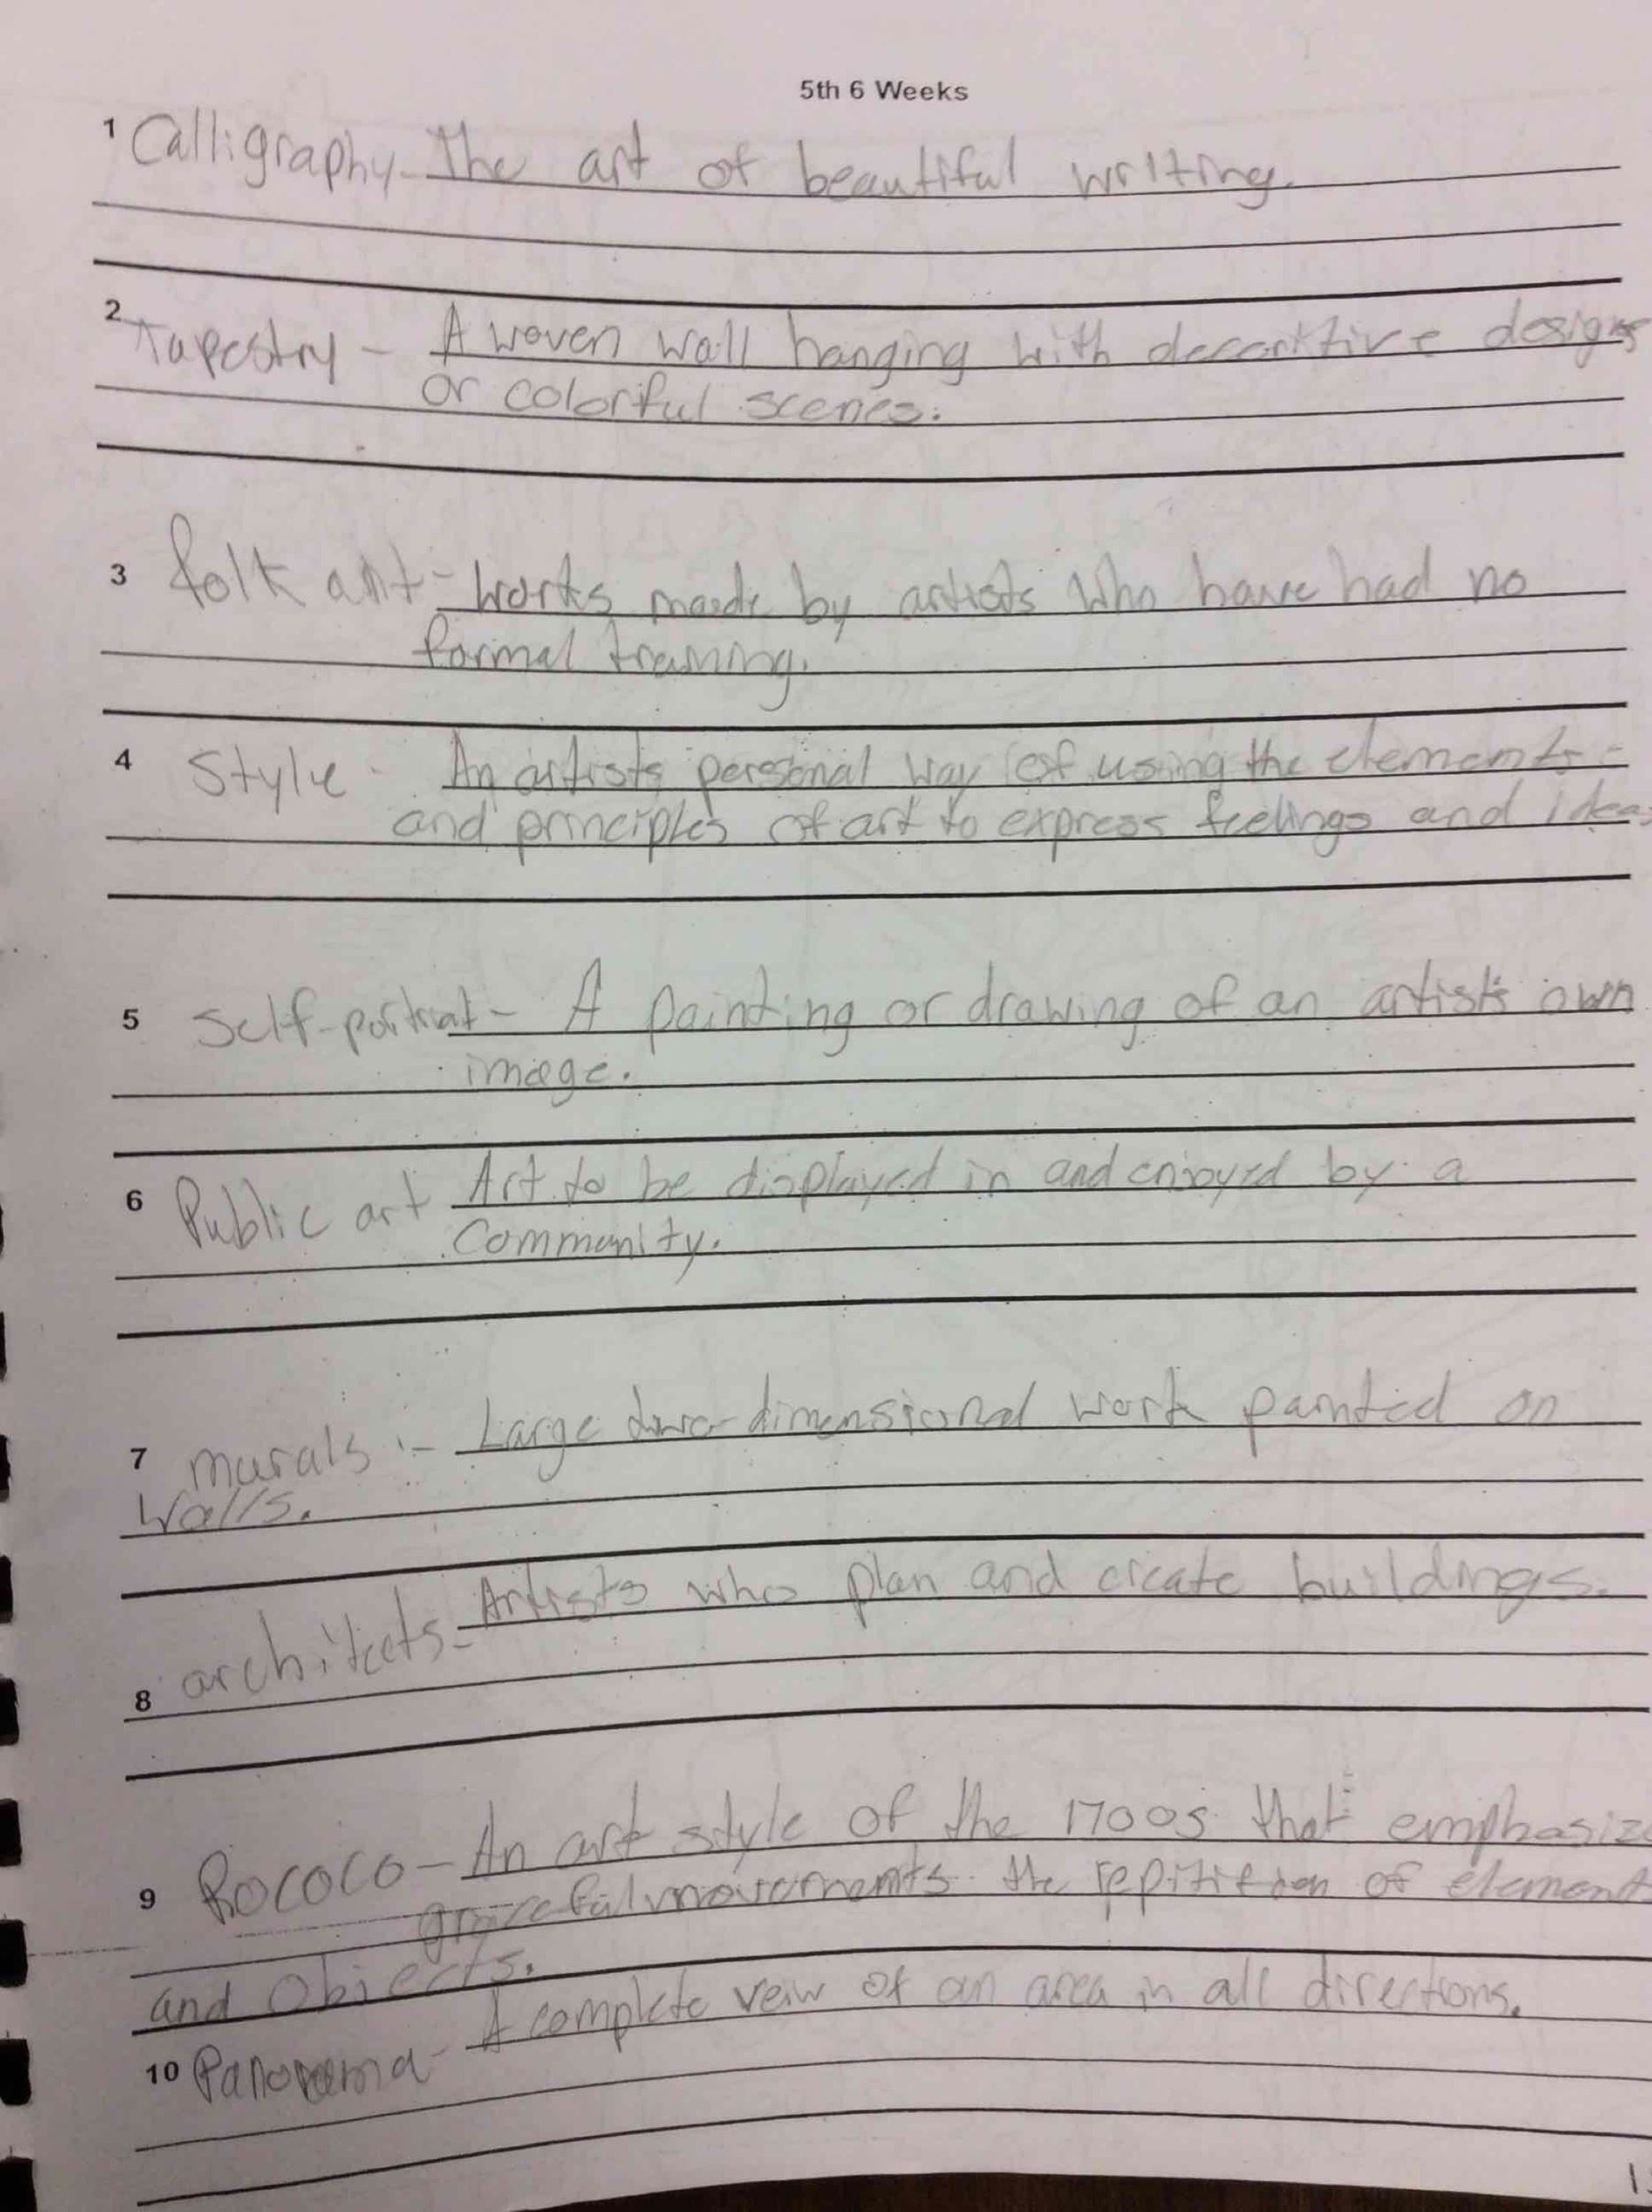 5th 6 Weeks
1 Calligraphy - The art of beautiful writing.
2 Tapestry - A woven wall hanging with decorative designs
or colorful scenes.
3 folk art - works made by artists who have had no
formal training.
4 Style - An artists personal way of using the elements
and principles of art to express feelings and ideas
5 Self-portrait - A painting or drawing of an artist's own
image.
6 Public art Art to be displayed in and enjoyed by a
Community.
7 murals - Large two-dimensional work painted on
Walls.
8 architects - Artists who plan and create buildings.
9 Rococo - An art style of the 1700s that emphasize
graceful movements. the repitition of element
and Objects.
10 Panorama - A complete veiw of an area in all directions.